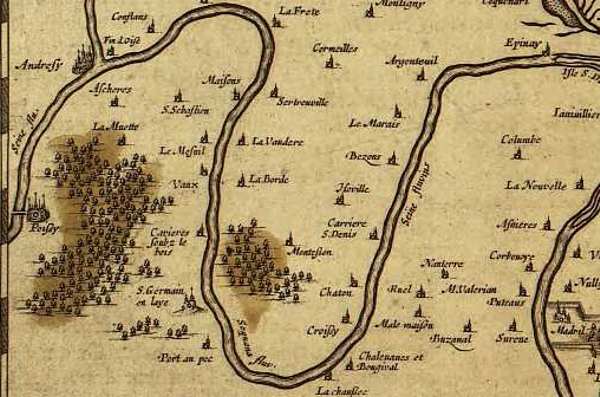 Montigny
Coquenart
Conflans
La Frete
Vin Loise
Cormeilles
Epinay
Andresy
Argenteuil
Isle S. D
Ascheres
S. Sebastien
Maisons
Sertrouville
Seine flu.
La Muette
Le Marais
Le Mesnil
La Vandere
Bezons
Columbe
Vaux
La Borde
Isoville
La Nouvelle
Seine fluvius
Poissy
Cavieres
soubz le
bois
Carriere
S. Denis
Asnieres
Montession
Nanterre
Corbevoye
S. Germain
en laye
Chaton
Ruel
M. Valerian
Puteaus
Sequana flu.
Croissy
Male maison
Madril
Port au pec
Buzanal
Surene
Chaleuanes et
Bougival
La chaussee